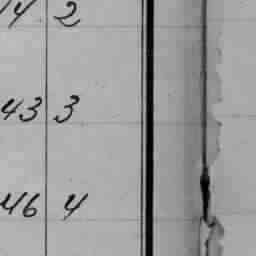 14 2
43 3
46 4